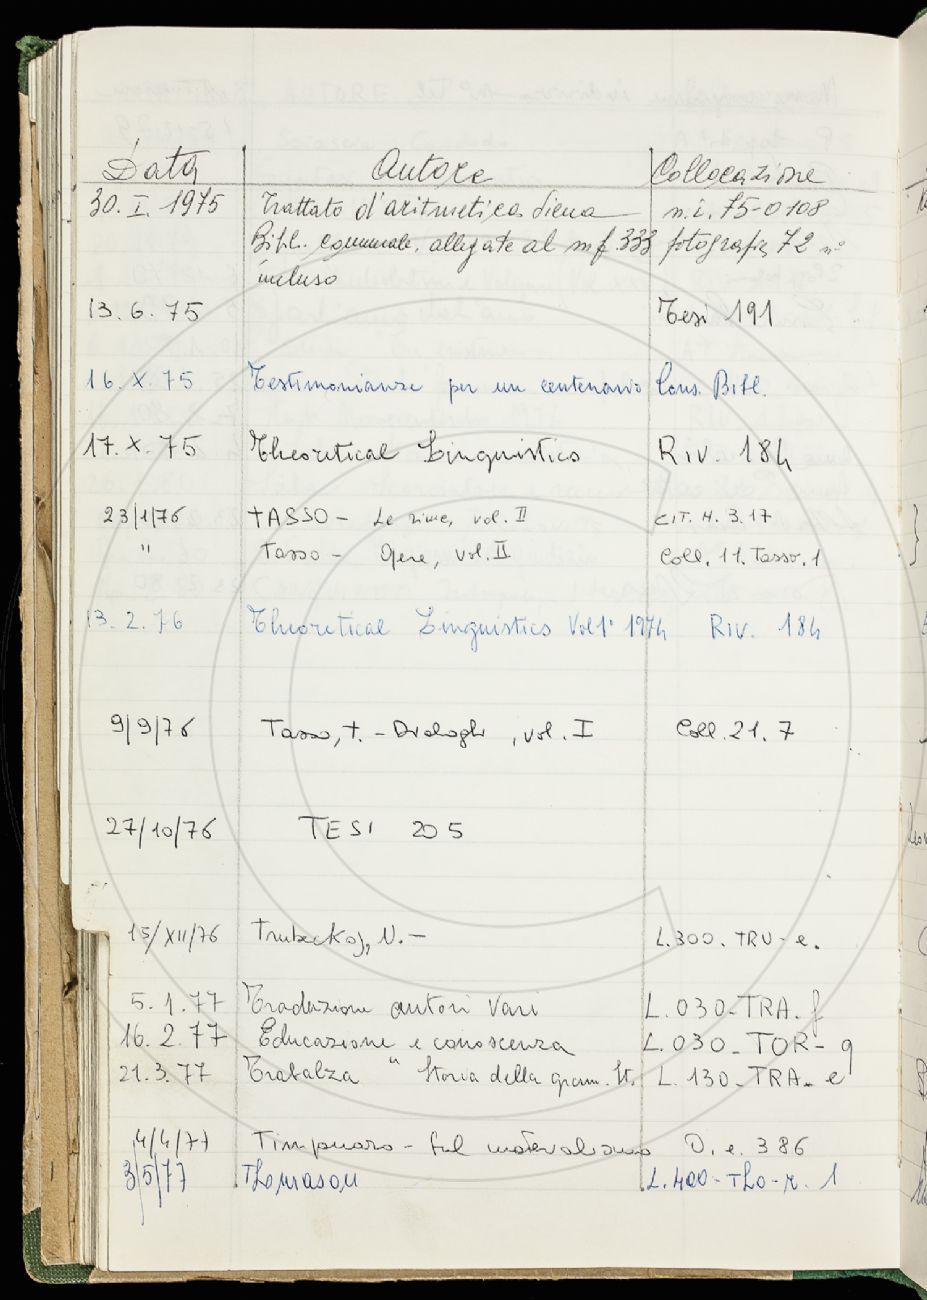 Data Autore Collocazione
30. I. 1975 Trattato d'aritmetica Siena n. i. 75-0108
Bibl. comunale, allegate al mf. 333 fotografie 72 n°
incluso
13. 6. 75 Tesi 191
16. X. 75 Testimonianze per un centenario Cons. Bibl.
17. X. 75 Theoretical Linguistics Riv. 184
23/1/76 TASSO - Le rime, vol. II CIT. H. 3.17
" Tasso - Opere, vol. II Coll. 11. Tasso. 1
13. 2. 76 Theoretical Linguistics Vol 1° 1974 Riv. 184
9/9/76 Tasso, T. - Dialoghi, vol. I Coll. 21. 7
27/10/76 TESI 205
15/XII/76 Trubeckoj, N. - L.300. TRU-e.
5. 1. 77 Traduzione autori vari L. 030-TRA. f
16. 2. 77 Educazione e conoscenza L. 030-TOR-g
21. 3. 77 Trabalza " Storia della gram. It. L. 130-TRA-e
4/4/77 Timpanaro - Sul materialismo O. e. 386
3/5/77 Thomason L. 400-THO-r. 1